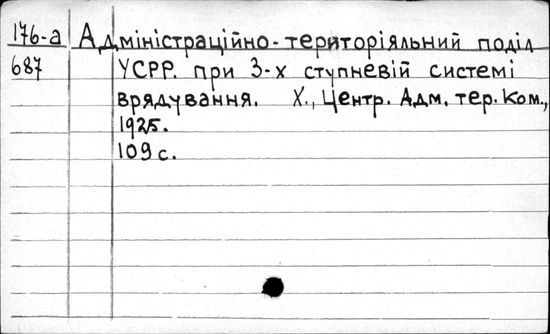 176-а Адміністраційно-територіяльний поділ
687 УСРР. при 3-х ступневій системі
врядування. Х., Центр. Адм. тер. Ком.,
1925.
109 с.